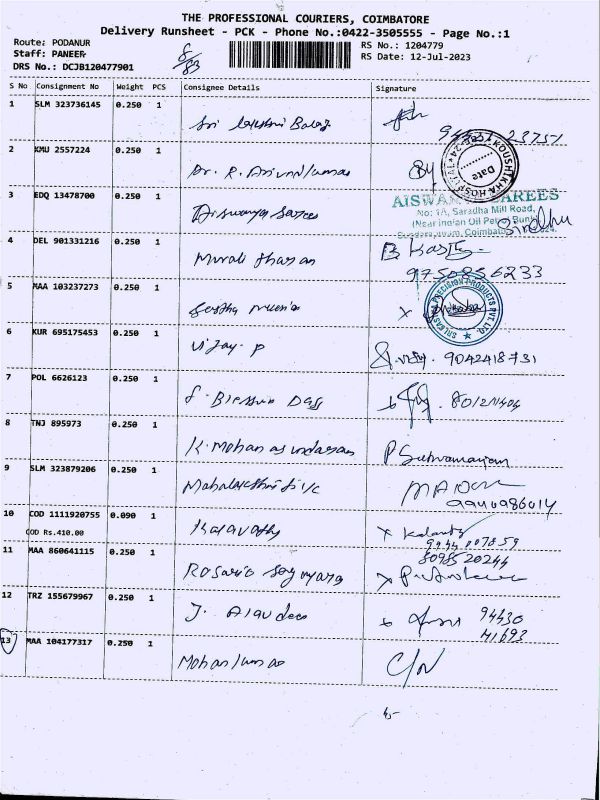 THE PROFESSIONAL COURIERS, COIMBATORE
Delivery Runsheet - PCK - Phone No.:0422-3505555 - Page No.:1
Route: PODANUR
RS No.: 1204779
Staff: PANEER
RS Date: 12-Jul-2023
DRS No.: DCJB120477901
S No Consignment No Weight PCS Consignee Details Signature
1 SLM 323736145 0.250 1
Sri Lakshmi Balaji
2 KMU 2557224 0.250 1
Dr. R. Arivudainmai
KOUSHTKHA HOSPITAL
Date
3 EDQ 13478700 0.250 1
Aiswarya Sarees
AISWARYA SAREES
No: 1A, Saradha Mill Road,
(Near Indian Oil Petrol Bunk)
Sundarapuram, Coimbatore
Sindhu
4 DEL 901331216 0.250 1
Murali dharan
9750856233
5 MAA 103237273 0.250 1
PRECISION PRODUCTS PVT. LTD.
6 KUR 695175453 0.250 1
Vijay. P
9042418731
7 POL 6626123 0.250 1
8 TNJ 895973 0.250 1
K. Mohanasundaram
P Subramaniam
9 SLM 323879206 0.250 1
9940986014
10 COD 1111920755 0.090 1
COD Rs.410.00
Kalavathy
9944 007859
8098520244
11 MAA 860641115 0.250 1
12 TRZ 155679967 0.250 1
94430
41693
13 MAA 104177317 0.250 1
Mohankumar
C/N